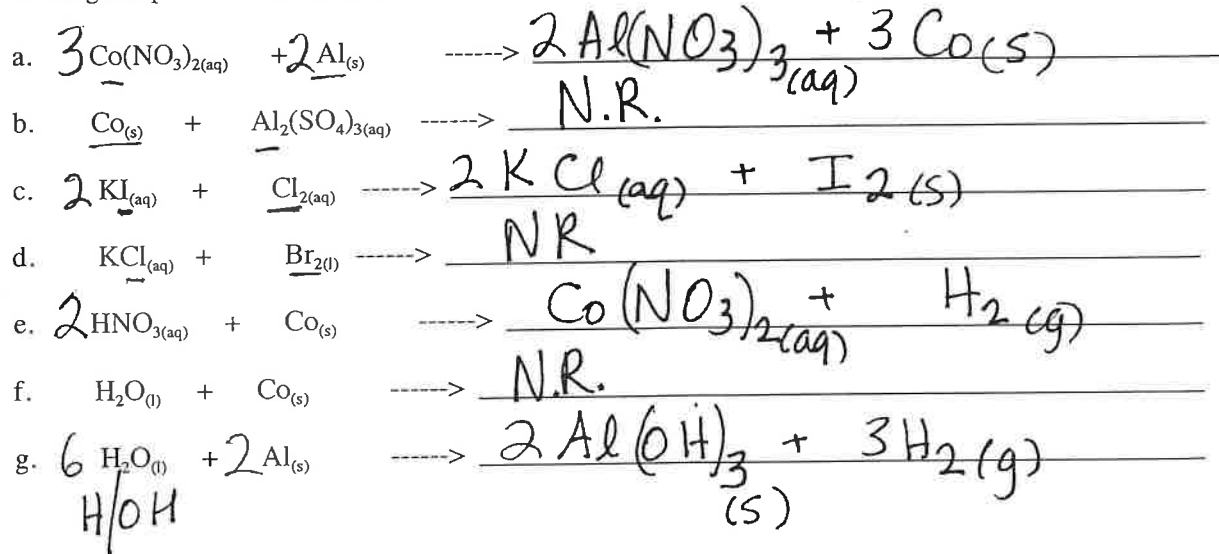 a. 3 Co(NO₃)₂(aq) + 2 Al(s) ------> 2 Al(NO3)3(aq) + 3 Co(s)
b. Co(s) + Al₂(SO₄)₃(aq) ------> N.R.
c. 2 KI(aq) + Cl₂(aq) ------> 2 K Cl (aq) + I2(s)
d. KCl(aq) + Br₂(l) ------> NR
e. 2 HNO₃(aq) + Co(s) ------> Co(NO3)2(aq) + H2(g)
f. H₂O(l) + Co(s) ------> N.R.
g. 6 H₂O(l) + 2 Al(s) ------> 2 Al(OH)3(s) + 3H2(g)
H/OH